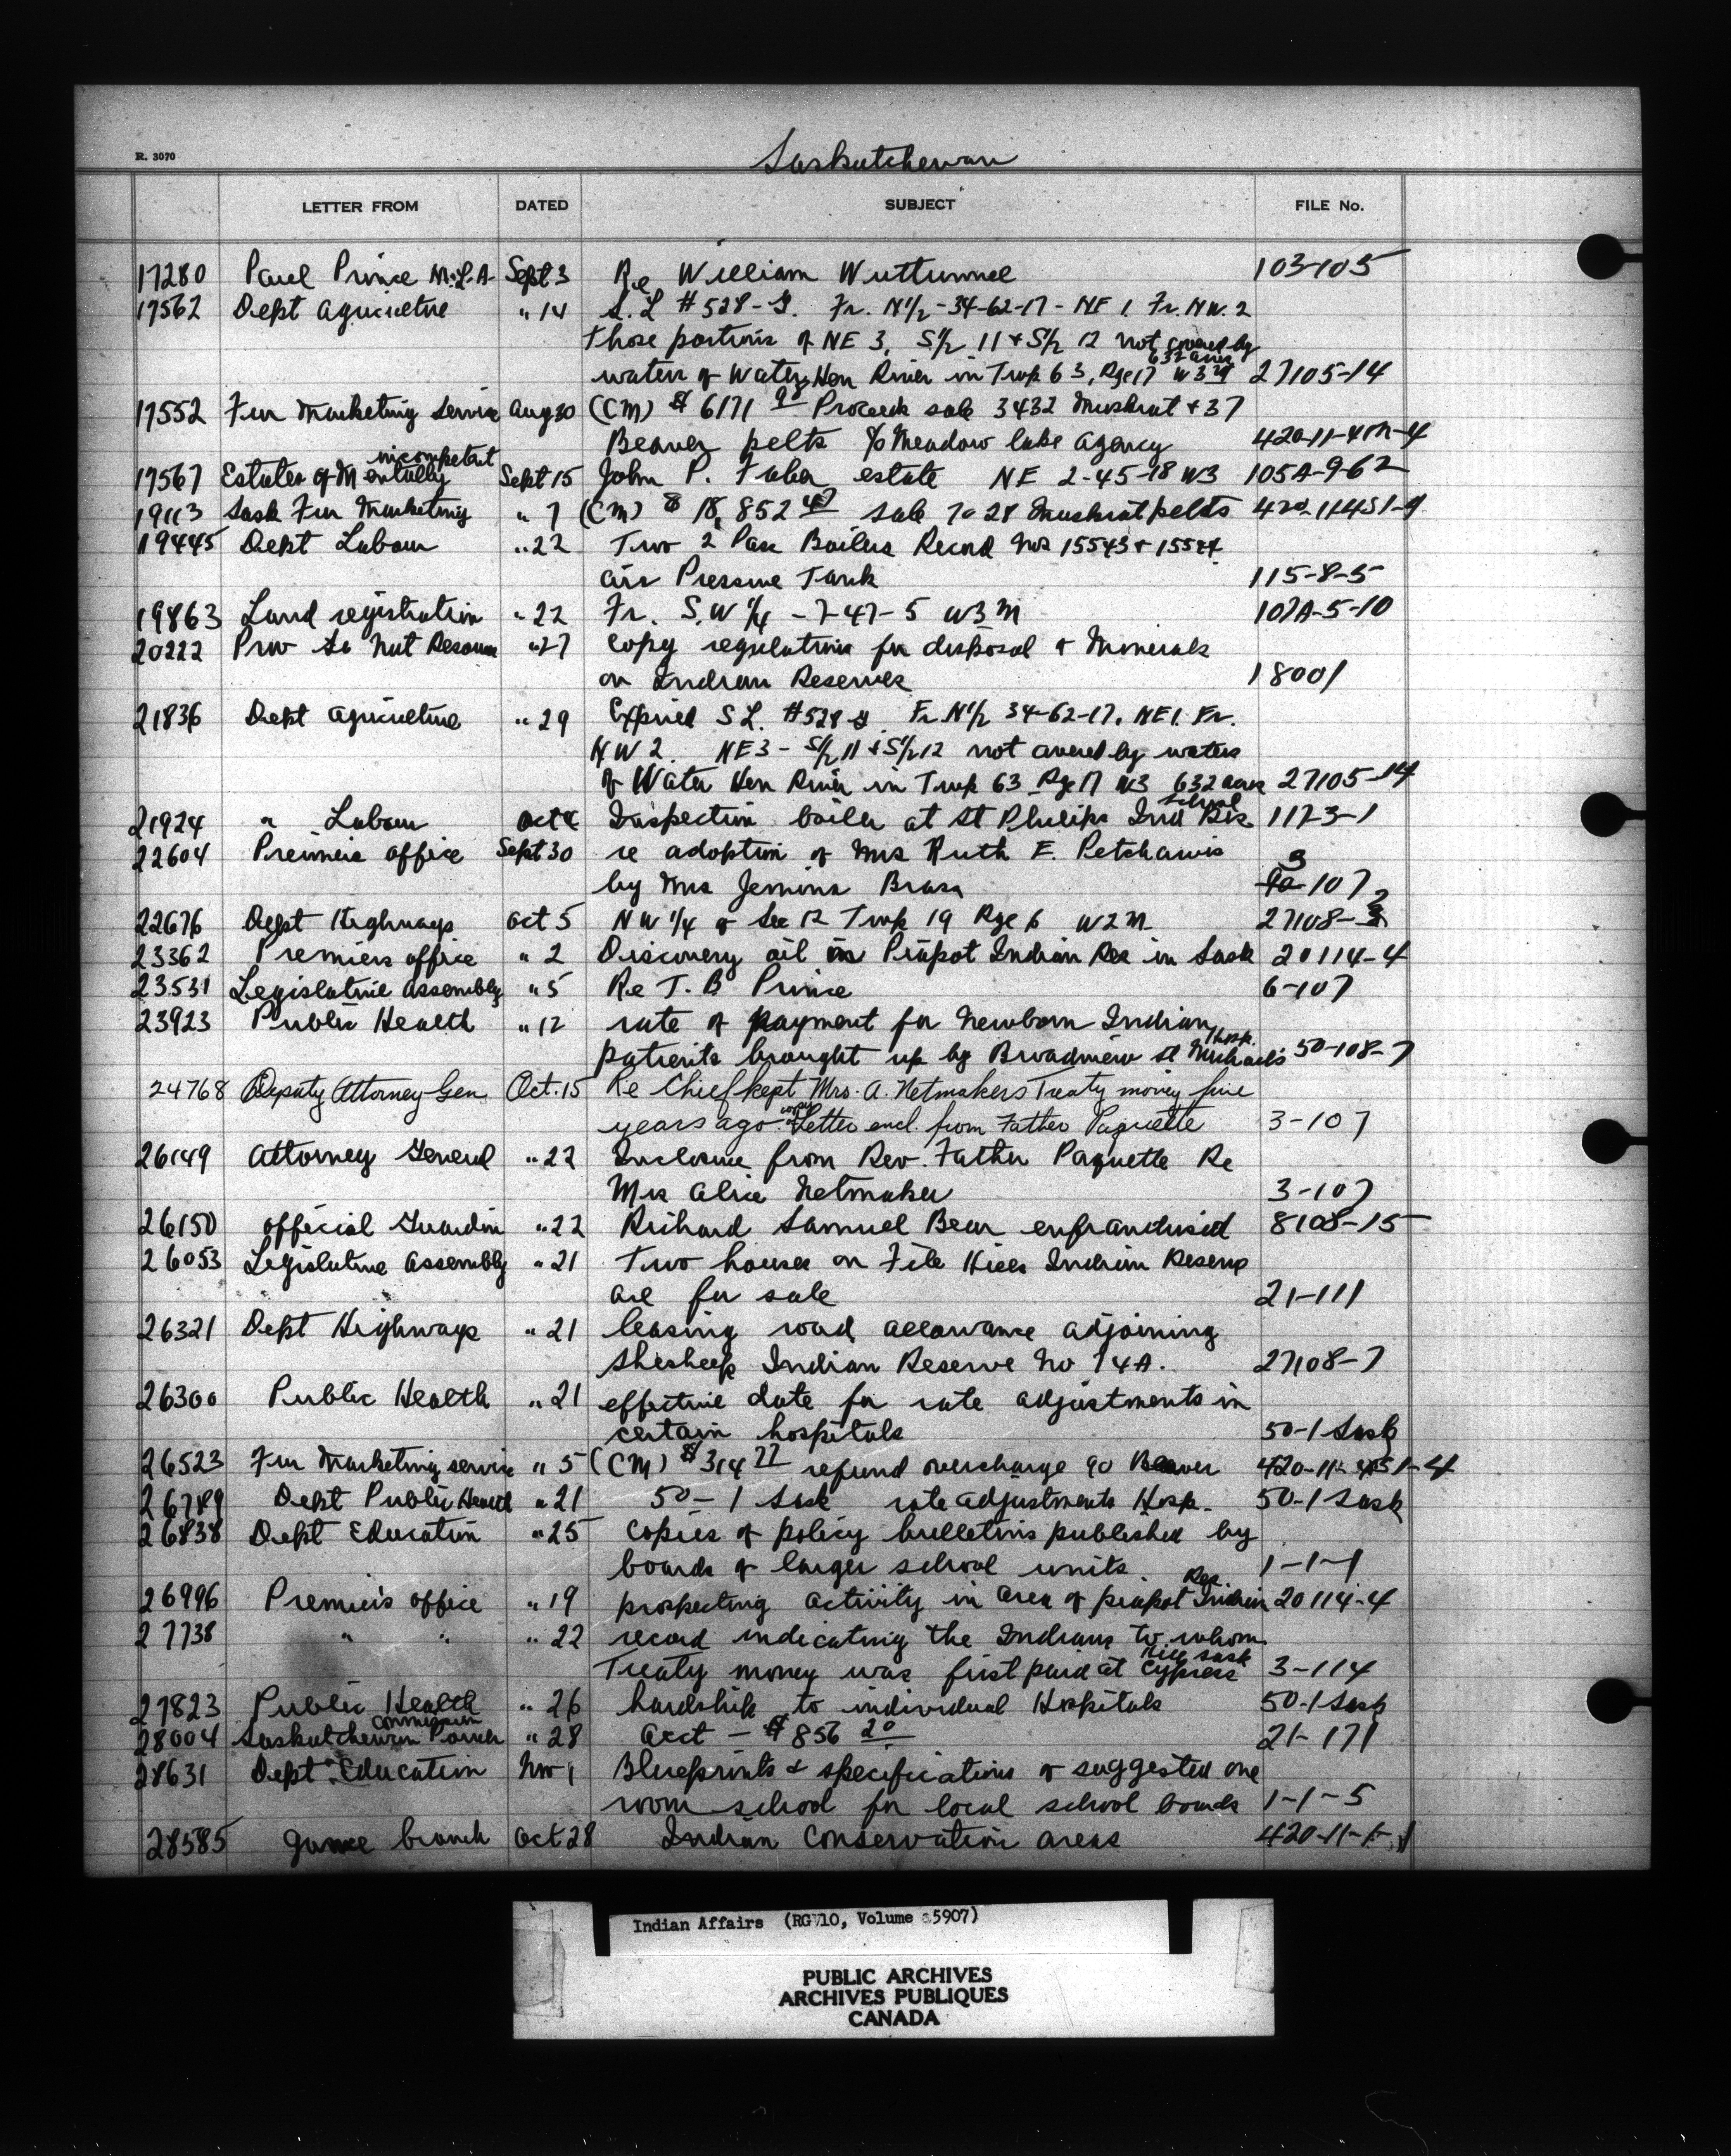 Saskatchewan
R. 3070
LETTER FROM DATED SUBJECT FILE No.
17280 Paul Prince M.L.A. Sept 3 Re William Wuttunnee 103-105
17562 Dept Agriculture " 14 S. L #528-G. Fr. N½-34-62-17-NE 1. Fr. NW. 2
Those portions of NE 3, S½ 11 & S½ 12 not covered by
632 acres
waters of Water Hen River in Twp 63, Rge 17 W3M 27105-14
17552 Fur Marketing Service Aug 30 (CM) $ 6171 90 Proceeds sale 3432 Muskrat & 37
Beaver pelts % Meadow Lake Agency
incompetent
17567 Estates of Mentally Sept 15 John P. estate NE 2-45-18 W3 105A-9-62
19113 Sask Fur Marketing " 7 (CM) $ 18,852 sale 7028 Muskrat pelts
19445 Dept Labour " 22 Two 2 Pass Boilers Record Nos 15543 &
Air Pressure Tank 115-8-5
19863 Land registration " 22 Fr. S.W ¼ - 7-47-5 W3M 107A-5-10
20222 Nat Resources " 27 Copy regulations for disposal of Minerals
on Indian Reserves 18001
21836 Dept Agriculture " 29 Expired S L. #528 G Fr. N½ 34-62-17. NE1. Fr.
NW 2. NE3 - S½ 11 & S½ 12 not covered by waters
of Water Hen River in Twp 63 Rge 17 W3 632 acres 27105-14
School
21924 " Labour Oct 4 Inspection boiler at St Philips Ind Res 117-3-1
22604 Premiers office Sept 30 re adoption of Mrs Ruth E. Petchawis
by Mrs Jemima Brass 3-107
22676 Dept Highways Oct 5 NW ¼ of Sec 12 Twp 19 Rge 6 W2M 27108-2
23362 Premiers office " 2 Discovery oil in Piapot Indian Res in Sask 20114-4
23531 Legislative Assembly " 5 Re T. B Prince 6-107
23923 Public Health " 12 rate of payment for Newborn Indian
Hosp.
patients brought up by Broadview St Michael's 50-108-7
24768 Deputy Attorney-Gen. Oct. 15 Re Chief kept Mrs. A. Netmakers Treaty money five
copy
years ago - Letter encl. from Father Paquette 3-107
26149 Attorney General " 22 Inclosure from Rev. Father Paquette Re
Mrs Alice Netmaker 3-107
26150 official Guardian " 22 Richard Samuel Bear enfranchised 8108-15
26053 Legislative Assembly " 21 Two houses on File Hills Indian Reserve
are for sale 21-111
26321 Dept Highways " 21 leasing road allowance adjoining
Shesheep Indian Reserve No 74A. 27108-7
26300 Public Health " 21 effective date for rate adjustments in
certain hospitals 50-1 Sask
26523 Fur Marketing service " 5 (CM) $314 77 refund overcharge 90 Beaver
26789 Dept Public Health " 21 50-1 Sask rate adjustments Hosp. 50-1 Sask
26838 Dept Education " 25 Copies of policy bulletins published by
boards of larger school units. 1-1-1
Res
26996 Premiers office " 19 prospecting activity in area of piapot Indian 20114-4
27738 " " " 22 record indicating the Indians to whom
Hills Sask
Treaty money was first paid at Cypress 3-114
27823 Public Health " 26 hardship to individual Hospitals 50-1 Sask
Commission
28004 Saskatchewan Power " 28 Acct - $ 856 20 21-171
28631 Dept Education Nov 1 Blueprints & specifications of suggested one
room school for local school boards 1-1-5
28585 game branch Oct 28 Indian Conservation areas
Indian Affairs (RG 10, Volume 5907)
PUBLIC ARCHIVES
ARCHIVES PUBLIQUES
CANADA